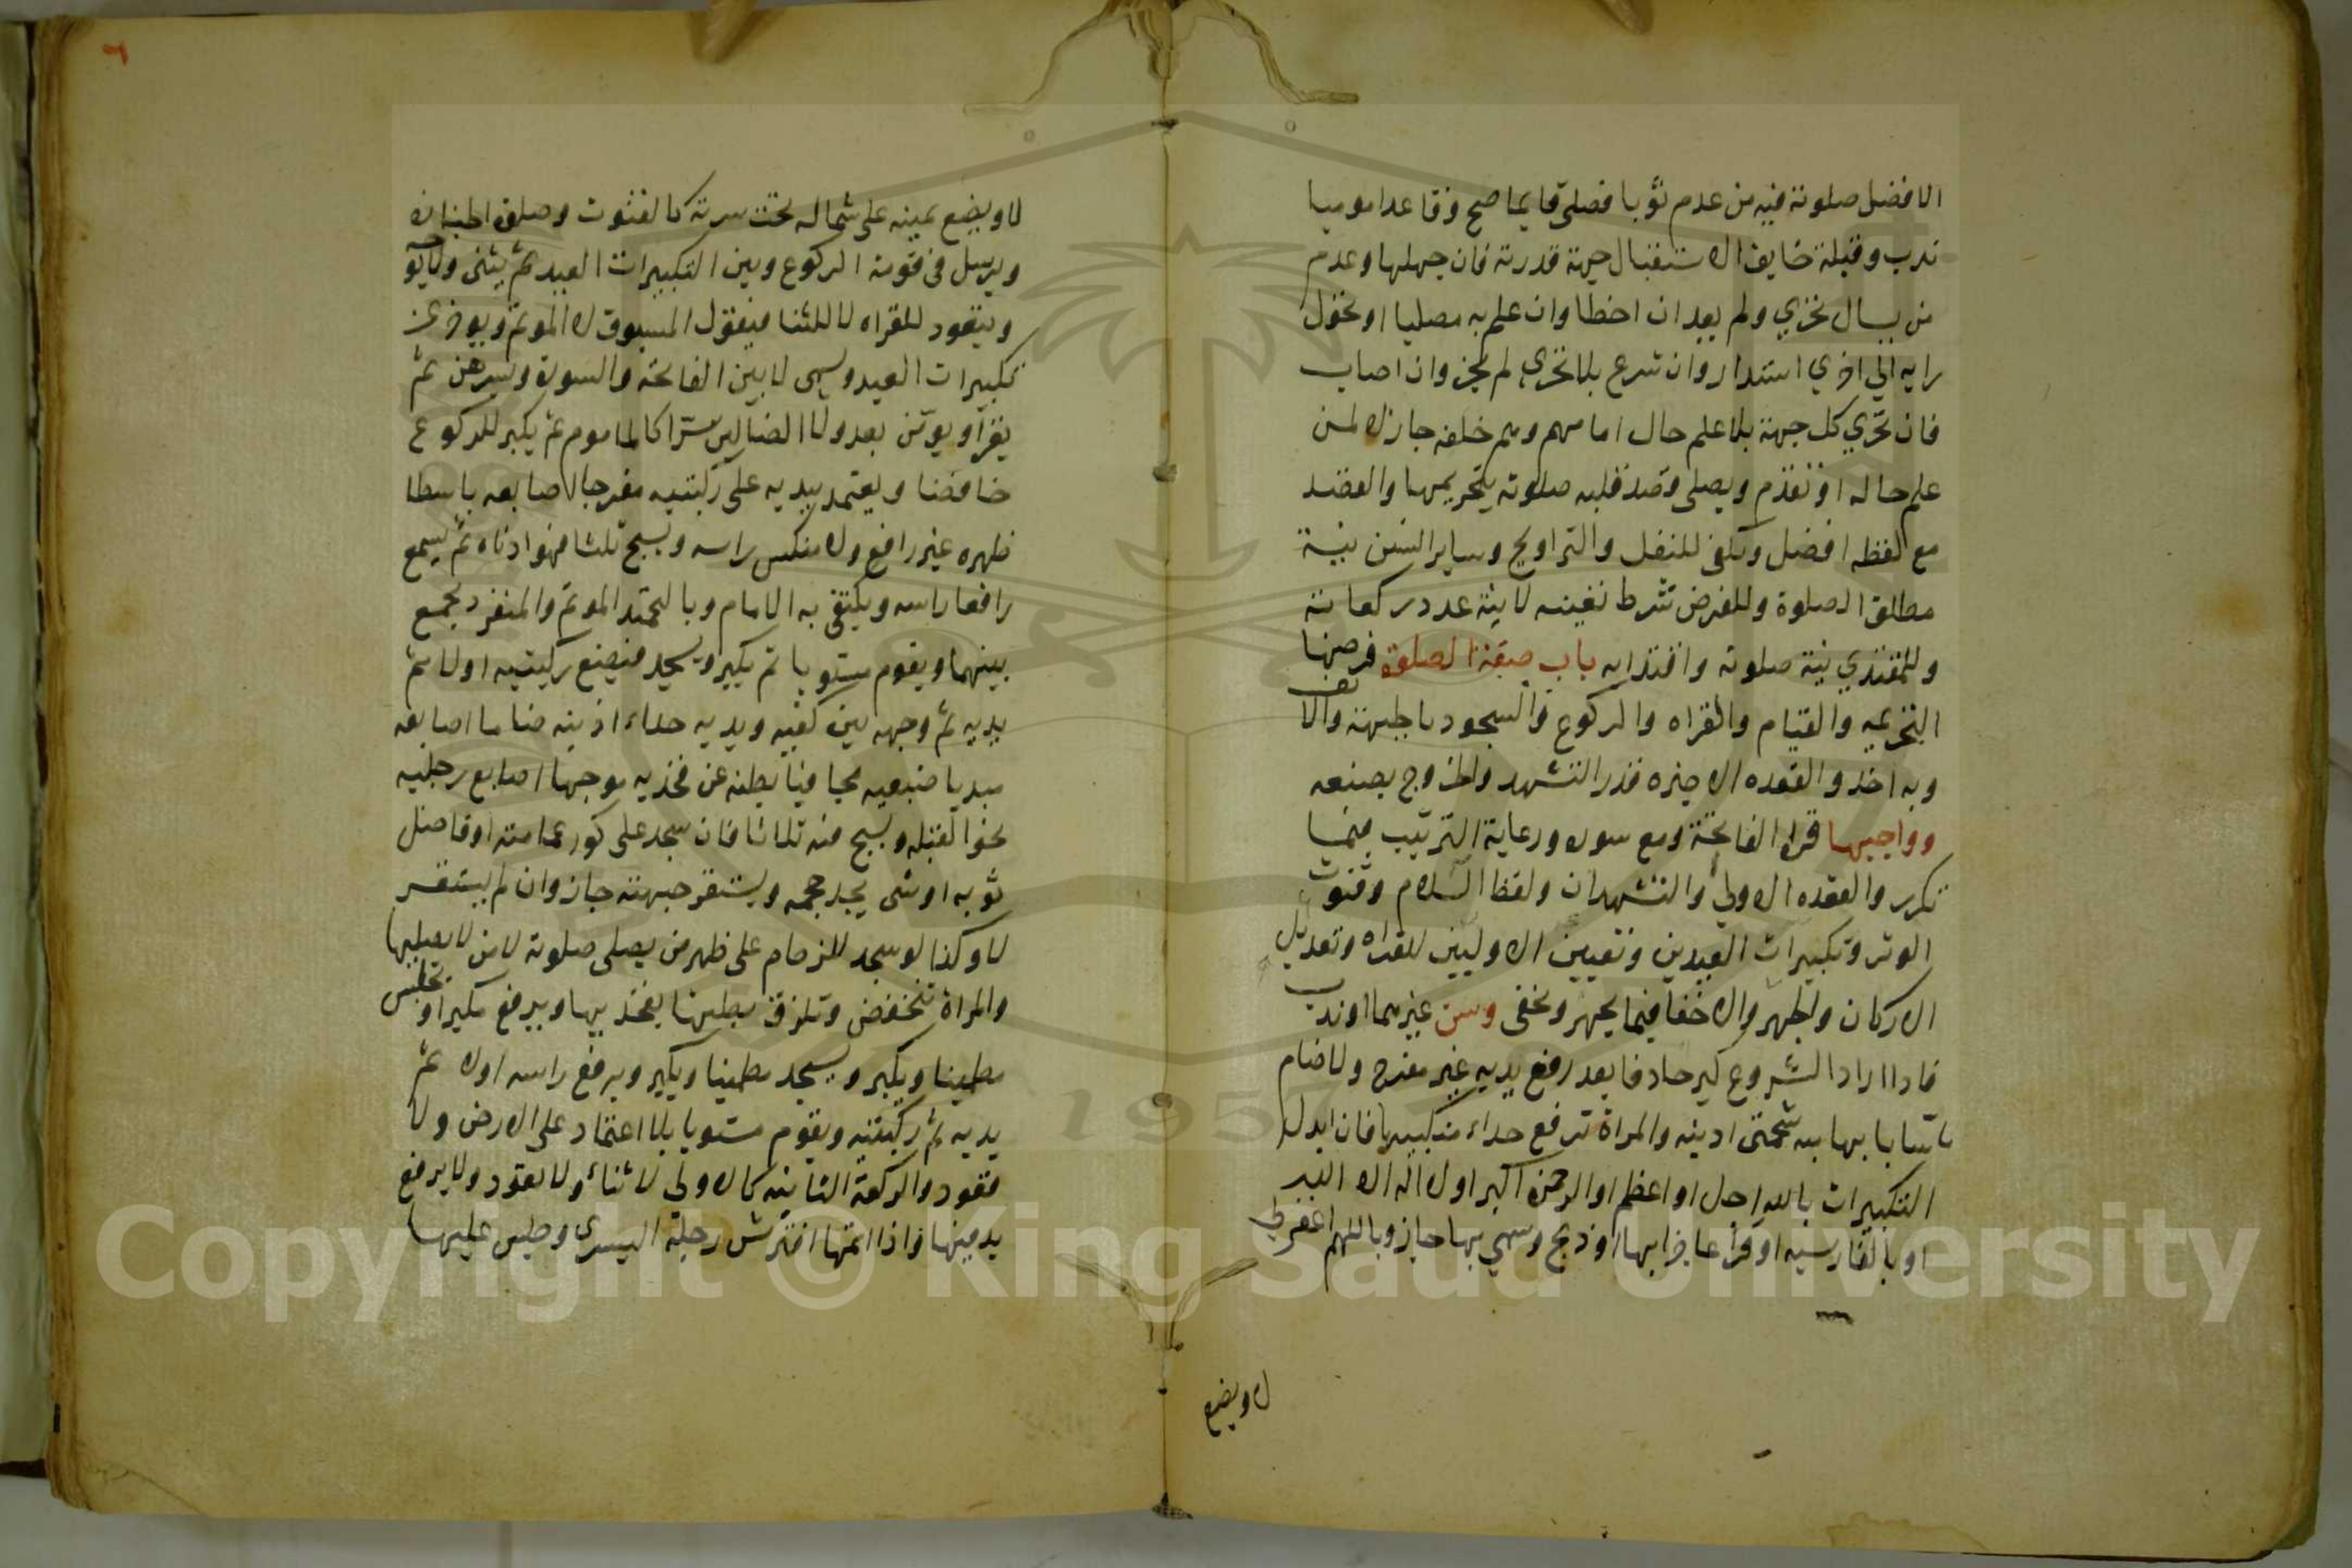 الافضل صلوته فيه من عدم ثوبا فصلى قايما صح وقاعدا موميا
ندب وقبلة خايف الاستقبال جهة قدرته فان جهلها وعدم
من يسال تحري ولم يعد ان اخطا وان علم به مصليا او تحول
رايه الي اخري استدار وان شرع بلا تحري لم يجز وان اصاب
فان تحري كل جهة بلا علم حال امامهم وهم خلفه جاز لا لمن
علم حاله او تقدم ويصلى قصد قلبه صلوته بتحريمها والقصد
مع لفظه افضل وكفي للنفل والتراويح وساير السنن بنية
مطلق الصلوة وللفرض شرط تعينه لا نية عدد ركعاته
وللمقتدي نية صلوته واقتدايه باب صفة الصلوة فرضها
التحريمه والقيام والقراه والركوع والسجود بالجبهة والانف
وبه اخذ والقعده الاخيره قدر التشهد والخروج بصنعه
وواجبها قراه الفاتحة ومع سوره ورعاية الترتيب فيما
تكرر والعقده الاولي والتشهدان ولفظ السلام وقنوت
الوتر وتكبيرات العيدين وتعيين الاوليين للقراه وتعديل
الاركان والجهر والاخفا فيما يجهر ونخفى وسن غيرهما او ندب
فاذا اراد الشروع كبر حاذفا بعد رفع يديه غير مفرج ولا ضام
ماسا بابهاميه شحمتى اذنيه والمراة ترفع حداء منكبيها فان ابدل
التكبيرات بالله اجل او اعظم او الرحمن اكبر او لا اله الا الله
او بالفارسيه او قرا عاجزا بها او ذبح وسمي بها جاز وباللهم اغفرلي
لا ويضع
٦
لا ويضع يمينه على شماله تحت سرته كالقنوت وصلوة الجنازه
ويرسل فى قومة الركوع وبين التكبيرات العيد ثم يثنى ولا يوجه
ويتعود للقراه لا للثنا فيقول المسبوق لا الموتم ويوخر عن
تكبيرات العيد ويسمى لا بين الفاتحه والسورة ويسرهن ثم
يقرا ويومن بعد ولا الضالين سترا كالماموم ثم يكبر للركوع
خافضا ويعتمد بيديه على ركبتيه مفرجا اصابعه باسطا
ظهره غير رافع ولا منكس راسه ويسبح ثلثا فهو ادناه ثم يسمع
رافعا راسه ويكتفى به الامام وبالتحمتد الموتم والمنفرد يجمع
بينهما ويقوم مستويا ثم يكبر ويسجد فيضع ركبتيه اولا ثم
يديه ثم وجهه بين كفيه ويديه حداء اذنيه ضاما اصابعه
مبديا ضبعيه مجافيا بطنه عن فخذيه موجها اصابع رجليه
نحو القبله ويسبح فيه ثلاثا فان سجد على كور عمامته او فاضل
ثوبه او شى يجد حجمه ويستقر جبهته جاز وان لم يستقر
لا وكذا لو سجد للزحام على ظهر من يصلى صلوته لا من لا يصليها
والمراة تنخفض وتلزق بطنها بفخذيها ويرفع مكبرا ويجلس
مطمينا ويكبر ويسجد مطمينا ويكبر ويرفع راسه اولا ثم
يديه ثم ركبتيه ويقوم مستويا بلا اعتماد على الارض ولا
قعود والركعة الثانيه كالاولي لا ثناء ولا تعوذ ولا يرفع
يد فيها واذا اتمها افترش رجله اليسري وجلس عليها
Copyright © King Saud University
1957